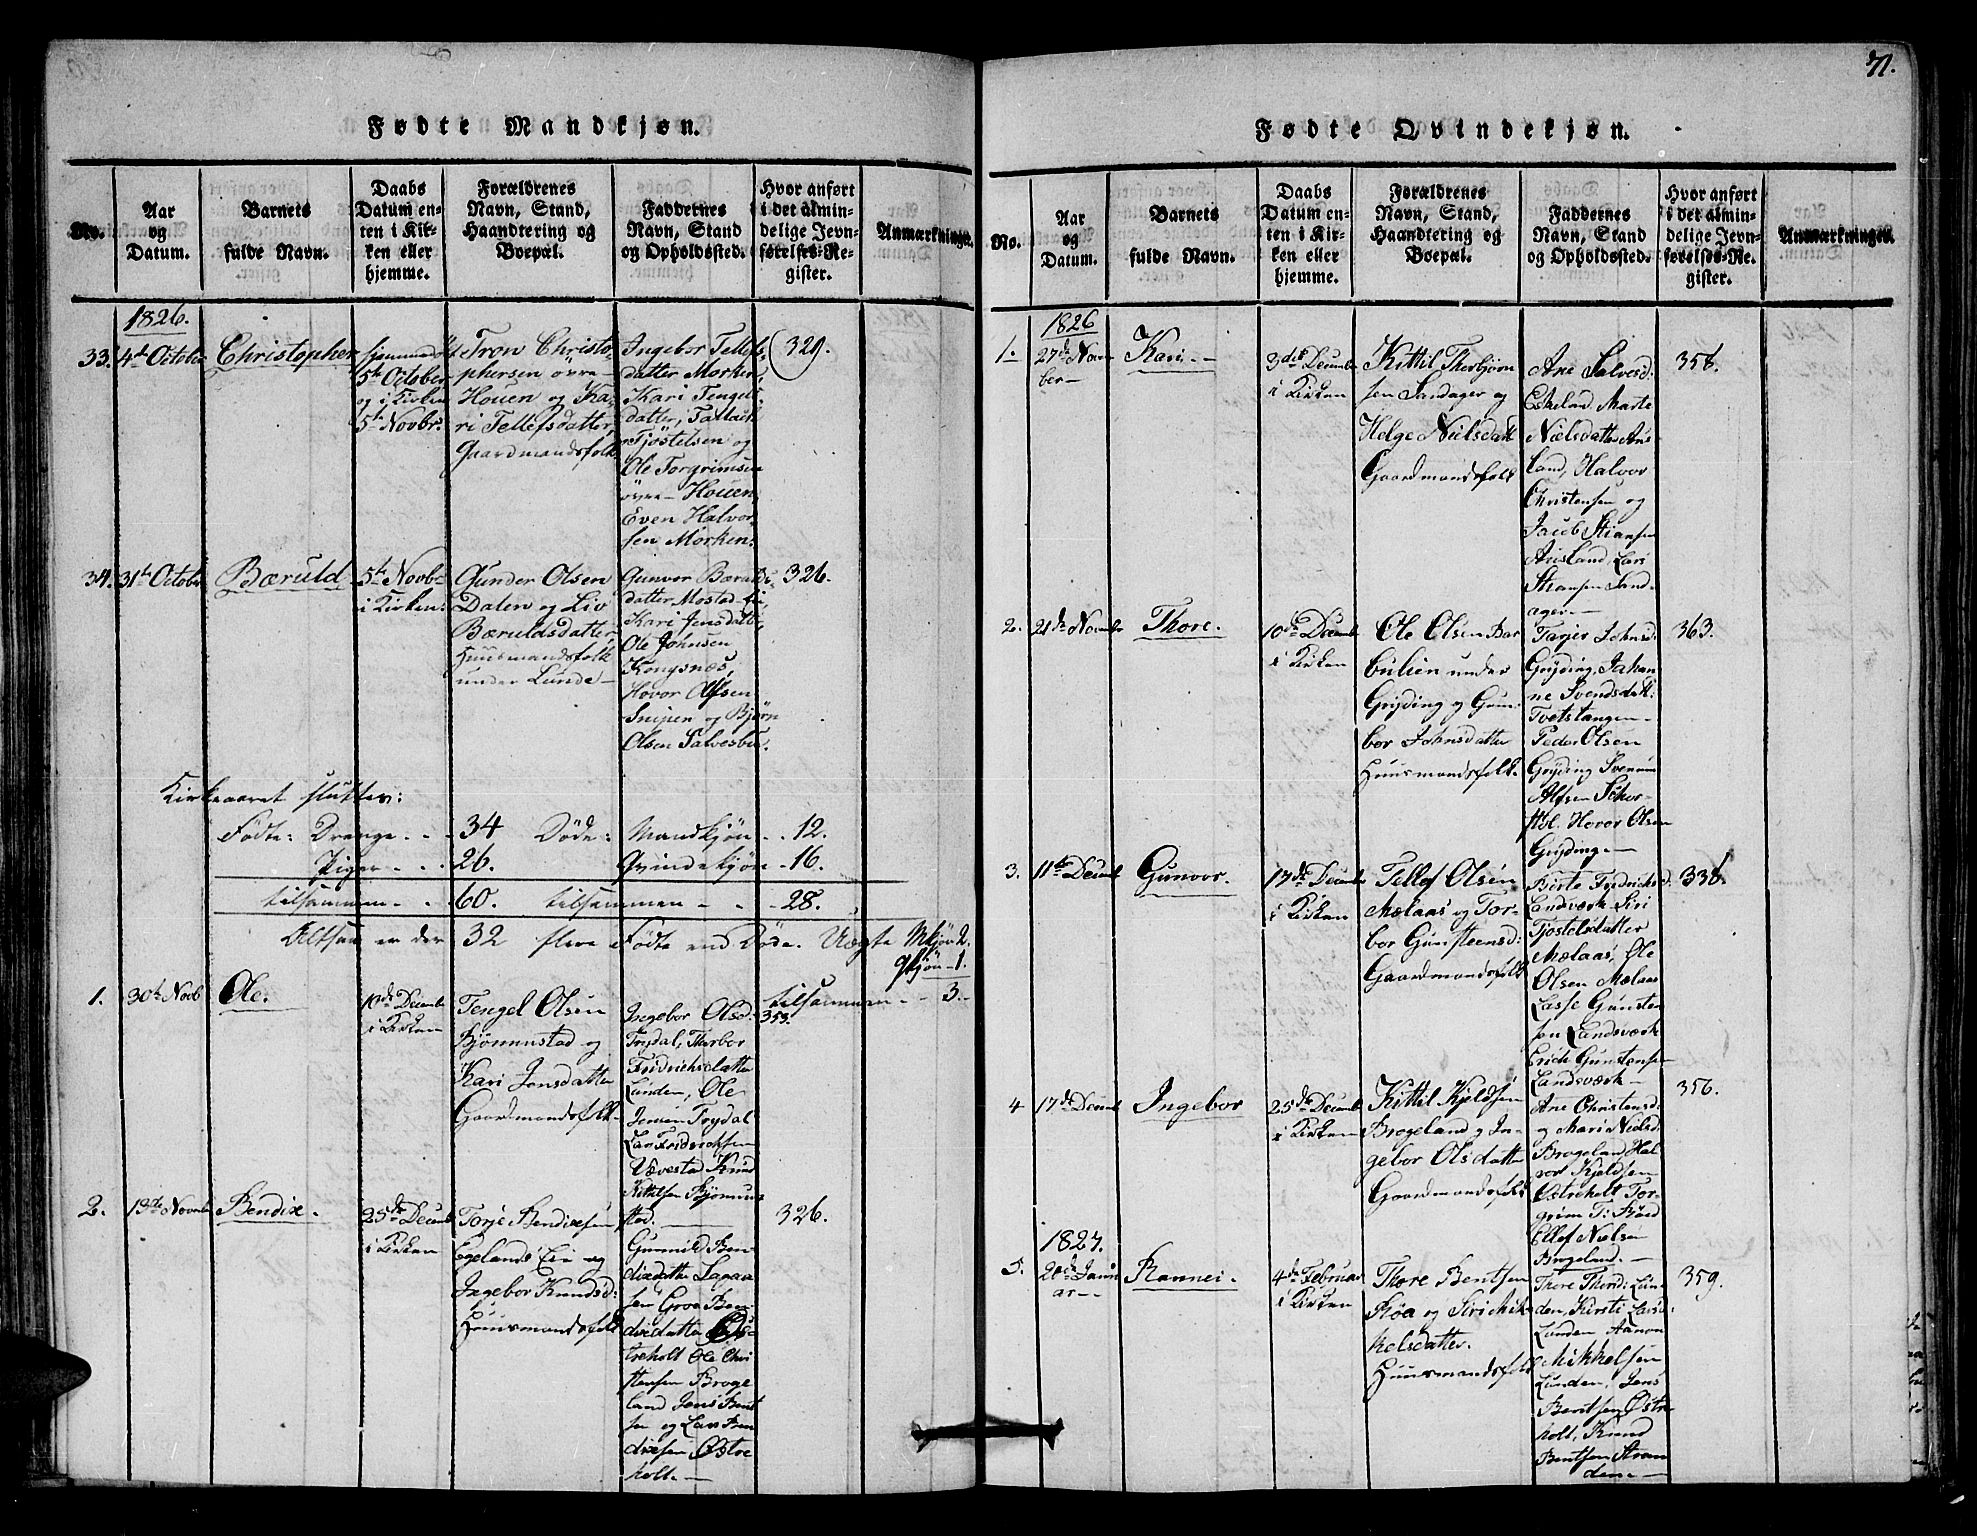 71.
Fødte Mandkjøn.
No.
Aar
og
Datum.
Barnets
fulde Navn.
Daabs
Datum en-
ten i Kir-
ken eller
hjemme.
Forældrenes
Navn, Stand,
Haandtering og
Boepæl.
Faddernes
Navn, Stand
og Opholdssted.
Hvor anført
i det almin-
delige Jevn-
førelses-Re-
gister.
Anmærkninger.
1826.
33.
4de October
Christopher
hjemmedøbt
5te October
og i Kirken
5te Novbr.
Tron Christo-
phersen øvre-
Houen og Ka-
ri Tellefsdatter,
Gaardmandsfolk
Ingebor Tellefs-
datter Morken,
Kari Tengels-
datter, Tallak
Tjöstelsen og
Ole Torgrimsen
övre- Houen,
Even Halvor-
sen Morken.
329.
34.
31te October
Bæruld
5te Novbr
i Kirken.
Gunder Olsen
Dalen og Liv
Bæruldsdatter,
Huusmandsfolk
under Lunde-
Gunvor Bærulds-
datter Mostad-
Kari Jensdatter,
Ole Johnsen
Kongsnæs,
Hovor Olsen
Snipen og Bjørn
Olsen Salvesbu.
326.
Kirkeaaret slutter:
Fødte: Drenge - - 34 Døde: Mandkjøn - - 12.
Piger - - 26. Qvindekjøn - 16.
tilsammen - - 60. tilsammen - - 28.
Altsaa er der 32 flere Fødte end Døde. Uægte Mkjön 2.
Qkjön - 1.
tilsammen - - 3.-
1.
30te Novb
Ole.
10de Decembr
i Kirken
Tengel Olsen
Bjönnustad og
Kari Jonsdatter
Gaardmandsfolk-
Ingebor Olsd:
Frydal, Thorbor
Fridrichsdatter
Lunden, Ole
Jensen Frydal
Lars Fridrichsen
Vævestad Knud
Kittilsen Bjönnus-
stad.
353.
2.
19de Novembr
Bendix.
25de Decembr
i Kirken
Tarje Bendixsen
Egelands Eie og
Ingebor Knudsd:
Huusmandsfolk
Gunnild Ben-
dixdatter
Groe Ben-
dixdatter Øs-
treholt Ole Chri-
stensen Broge-
land Jens Bent-
sen og Lars Ben-
dixsen Østre
holt.-
326.
Fødte Qvindekjøn.
No.
Aar
og
Datum.
Barnets
fulde Navn.
Daabs
Datum en-
ten i Kir-
ken eller
hjemme.
Forældrenes
Navn, Stand,
Haandtering og
Boepæl.
Faddernes
Navn, Stand
og Opholdssted.
Hvor anført
i det almin-
delige Jevn-
førelses-Re-
gister.
Anmærkninger.
1826
1.
27de Novem
ber-
Kari.-
3die Decembr
i Kirken
Kittil Thorbjørn
sen Sandager og
Helge Nielsdatt
Gaardmandsfolk
Ane Salvesd:
Eskeland, Marte
Nielsdatter Aas-
land, Halvor
Christensen og
Jacob Stiansen
Aasland, Lars
Stiansen Sand-
ager.-
358.
2.
21de Novembr
Thore.
10de Decembr
i Kirken
Ole Olsen Bar
bulien under
Gryding og Gun-
bor Johnsdatter
Huusmandsfolk.
Tarjer Johnsd:
Gryding, Johan-
ne Svendsdatt:
Tvetstangen-
Peder Olsen
Gryding Svenum
Alfsen Skor-
stöl. Hovor Olsen
Gryding.-
363.
3.
11te Decembr
Gunvor.
17de Decembr
i Kirken
Tellef Olsen
Mælaas og Tor-
bor Gunsteensd:
Gaardmandsfolk
Berte Fredrichsd:
Landsværk Siri
Tjöstelsdatter
Mælaas, Ole
Olsen Mælaas
Lasse Gunsten-
sen Landsværk
Erich Gunstensen
Landsværk-
338.
4
17de Decembr
Ingebor
25de Decembr
i Kirken
Kittil Kjeldsen
Brogeland og In-
gebor Olsdatter
Gaardmandsfolk
Ane Christensd:
og Mari Nielsd:
Brogeland, Hal-
vor Kjeldsen
Østreholt Tor-
grim T:
Ellef Nielsen
Brogeland.-
356.
1827.
5.
20de Janu
ar-
Rannei.
4de Februar
i Kirken
Thore Bentsen
Röa og Siri Mik-
kelsdatter.
Huusmandsfolk
Thore Thord: Lun-
den, Kirsti Larsd:
Lunden Aanon
Mikkelsen
Lunden, Jens
Bentsen Østre-
holt, Knud
Bentsen Stran-
den.-
359.